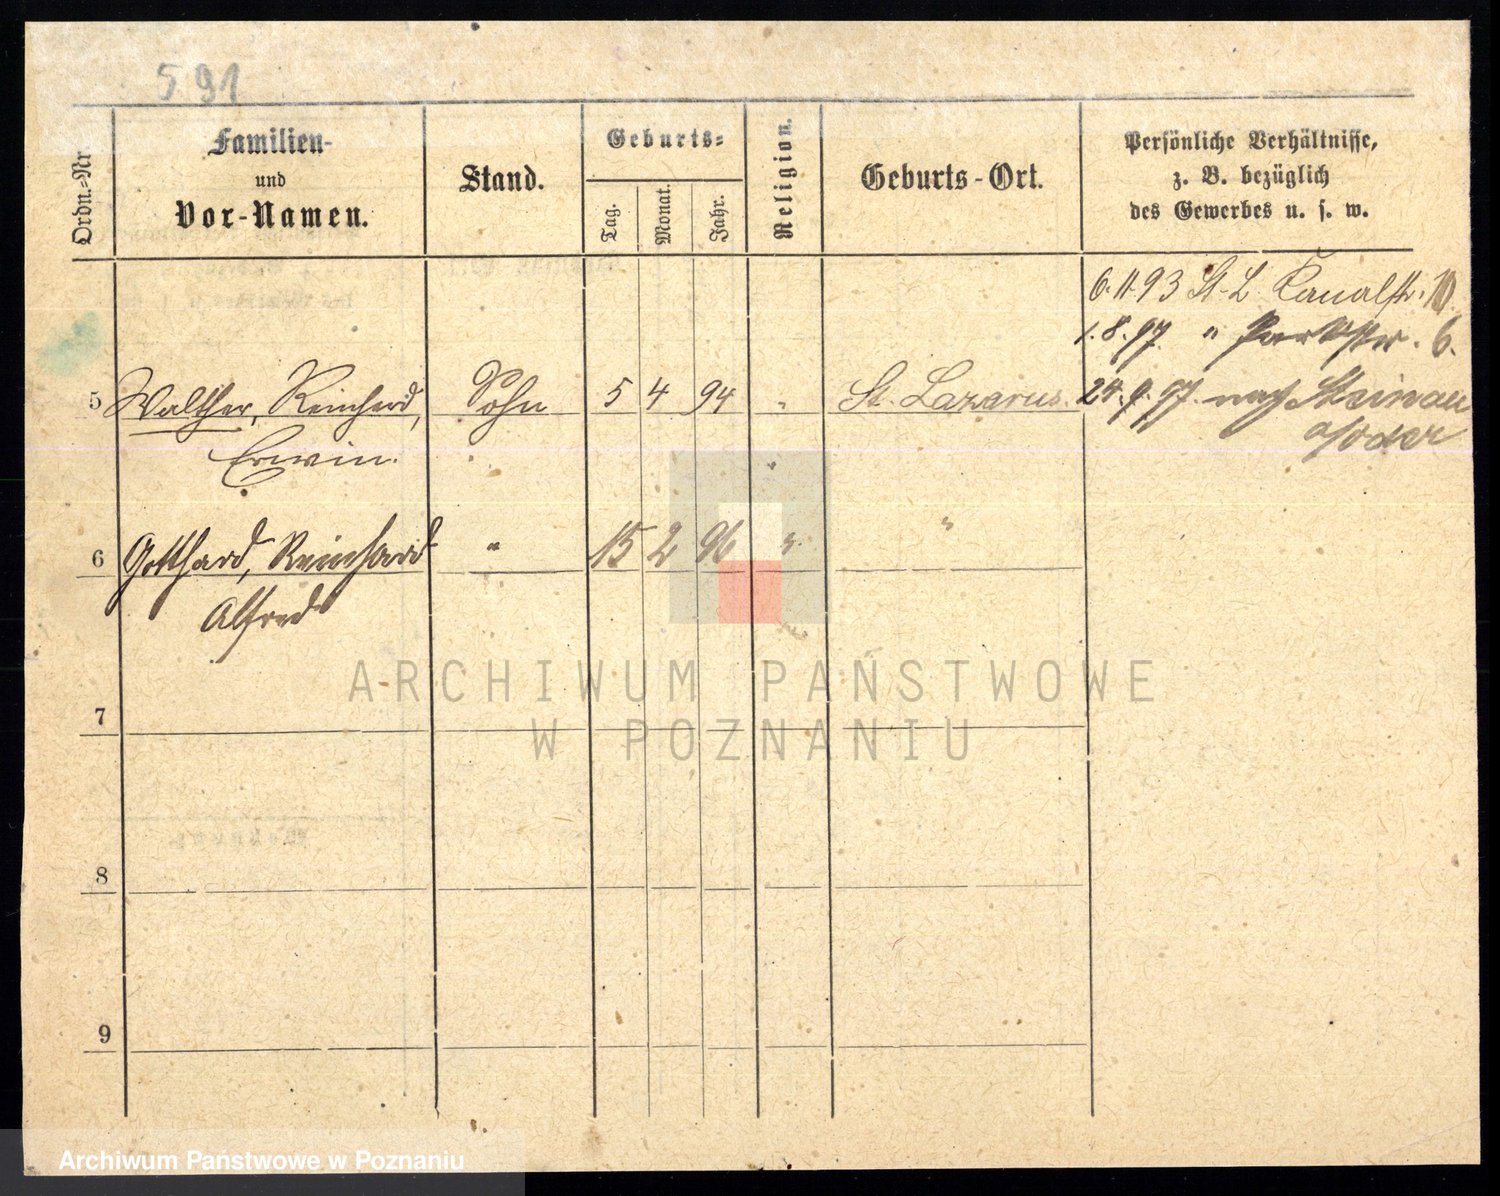 591
Ordn.-Nr.
Familien-
und
Vor-Namen.
Stand.
Geburts-
Tag.
Monat.
Jahr.
Religion.
Geburts-Ort.
Persönliche Verhältnisse,
z. B. bezüglich
des Gewerbes u. s. w.
6.11.93 St. L Kanalstr. 10.
1.8.97. " Parkstr. 6.
5 Walther, Reinhard, Sohn 5 4 94 " St. Lazarus. 24.9.97. nach Steinau
Erwin. a/Oder
6 Gotthard, Reinhard " 15 2 96 " "
Alfred
7
8
9
ARCHIWUM PAŃSTWOWE
W POZNANIU
Archiwum Państwowe w Poznaniu